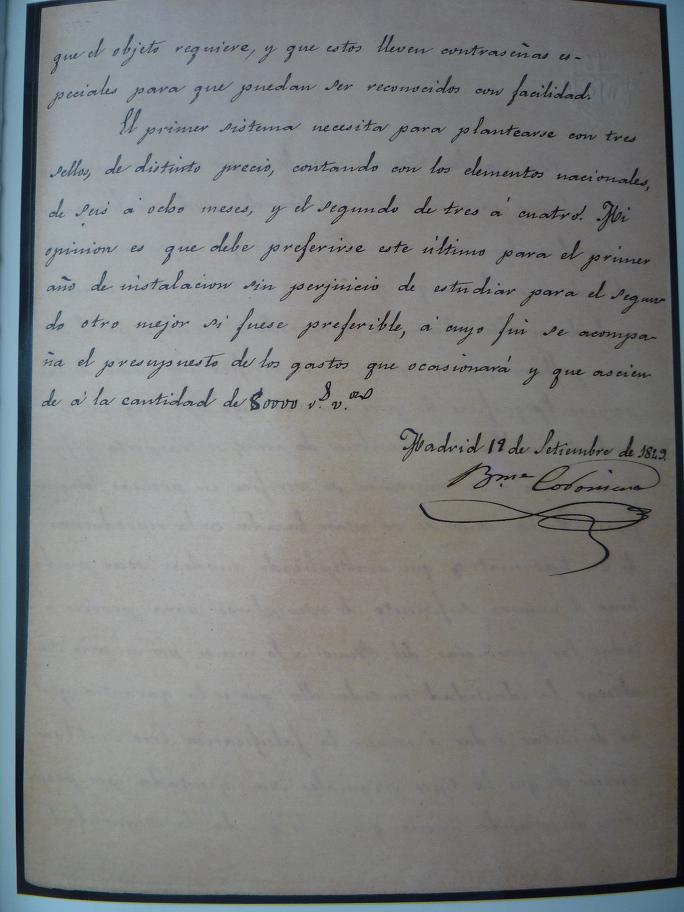 que el objeto requiere, y que estos lleven contraseñas es-
peciales para que puedan ser reconocidos con facilidad.
El primer sistema necesita para plantearse con tres
sellos, de distinto precio, contando con los elementos nacionales,
de seis á ocho meses, y el segundo de tres á cuatro. Mi
opinion es que debe preferirse este último para el primer
año de instalacion sin perjuicio de estudiar para el segun-
do otro mejor si fuese preferible, á cuyo fin se acompa-
ña el presupuesto de los gastos que ocasionará y que ascien-
de á la cantidad de 80000 r.s v.on
Madrid 12 de Setiembre de 1849.
B.me Coromina